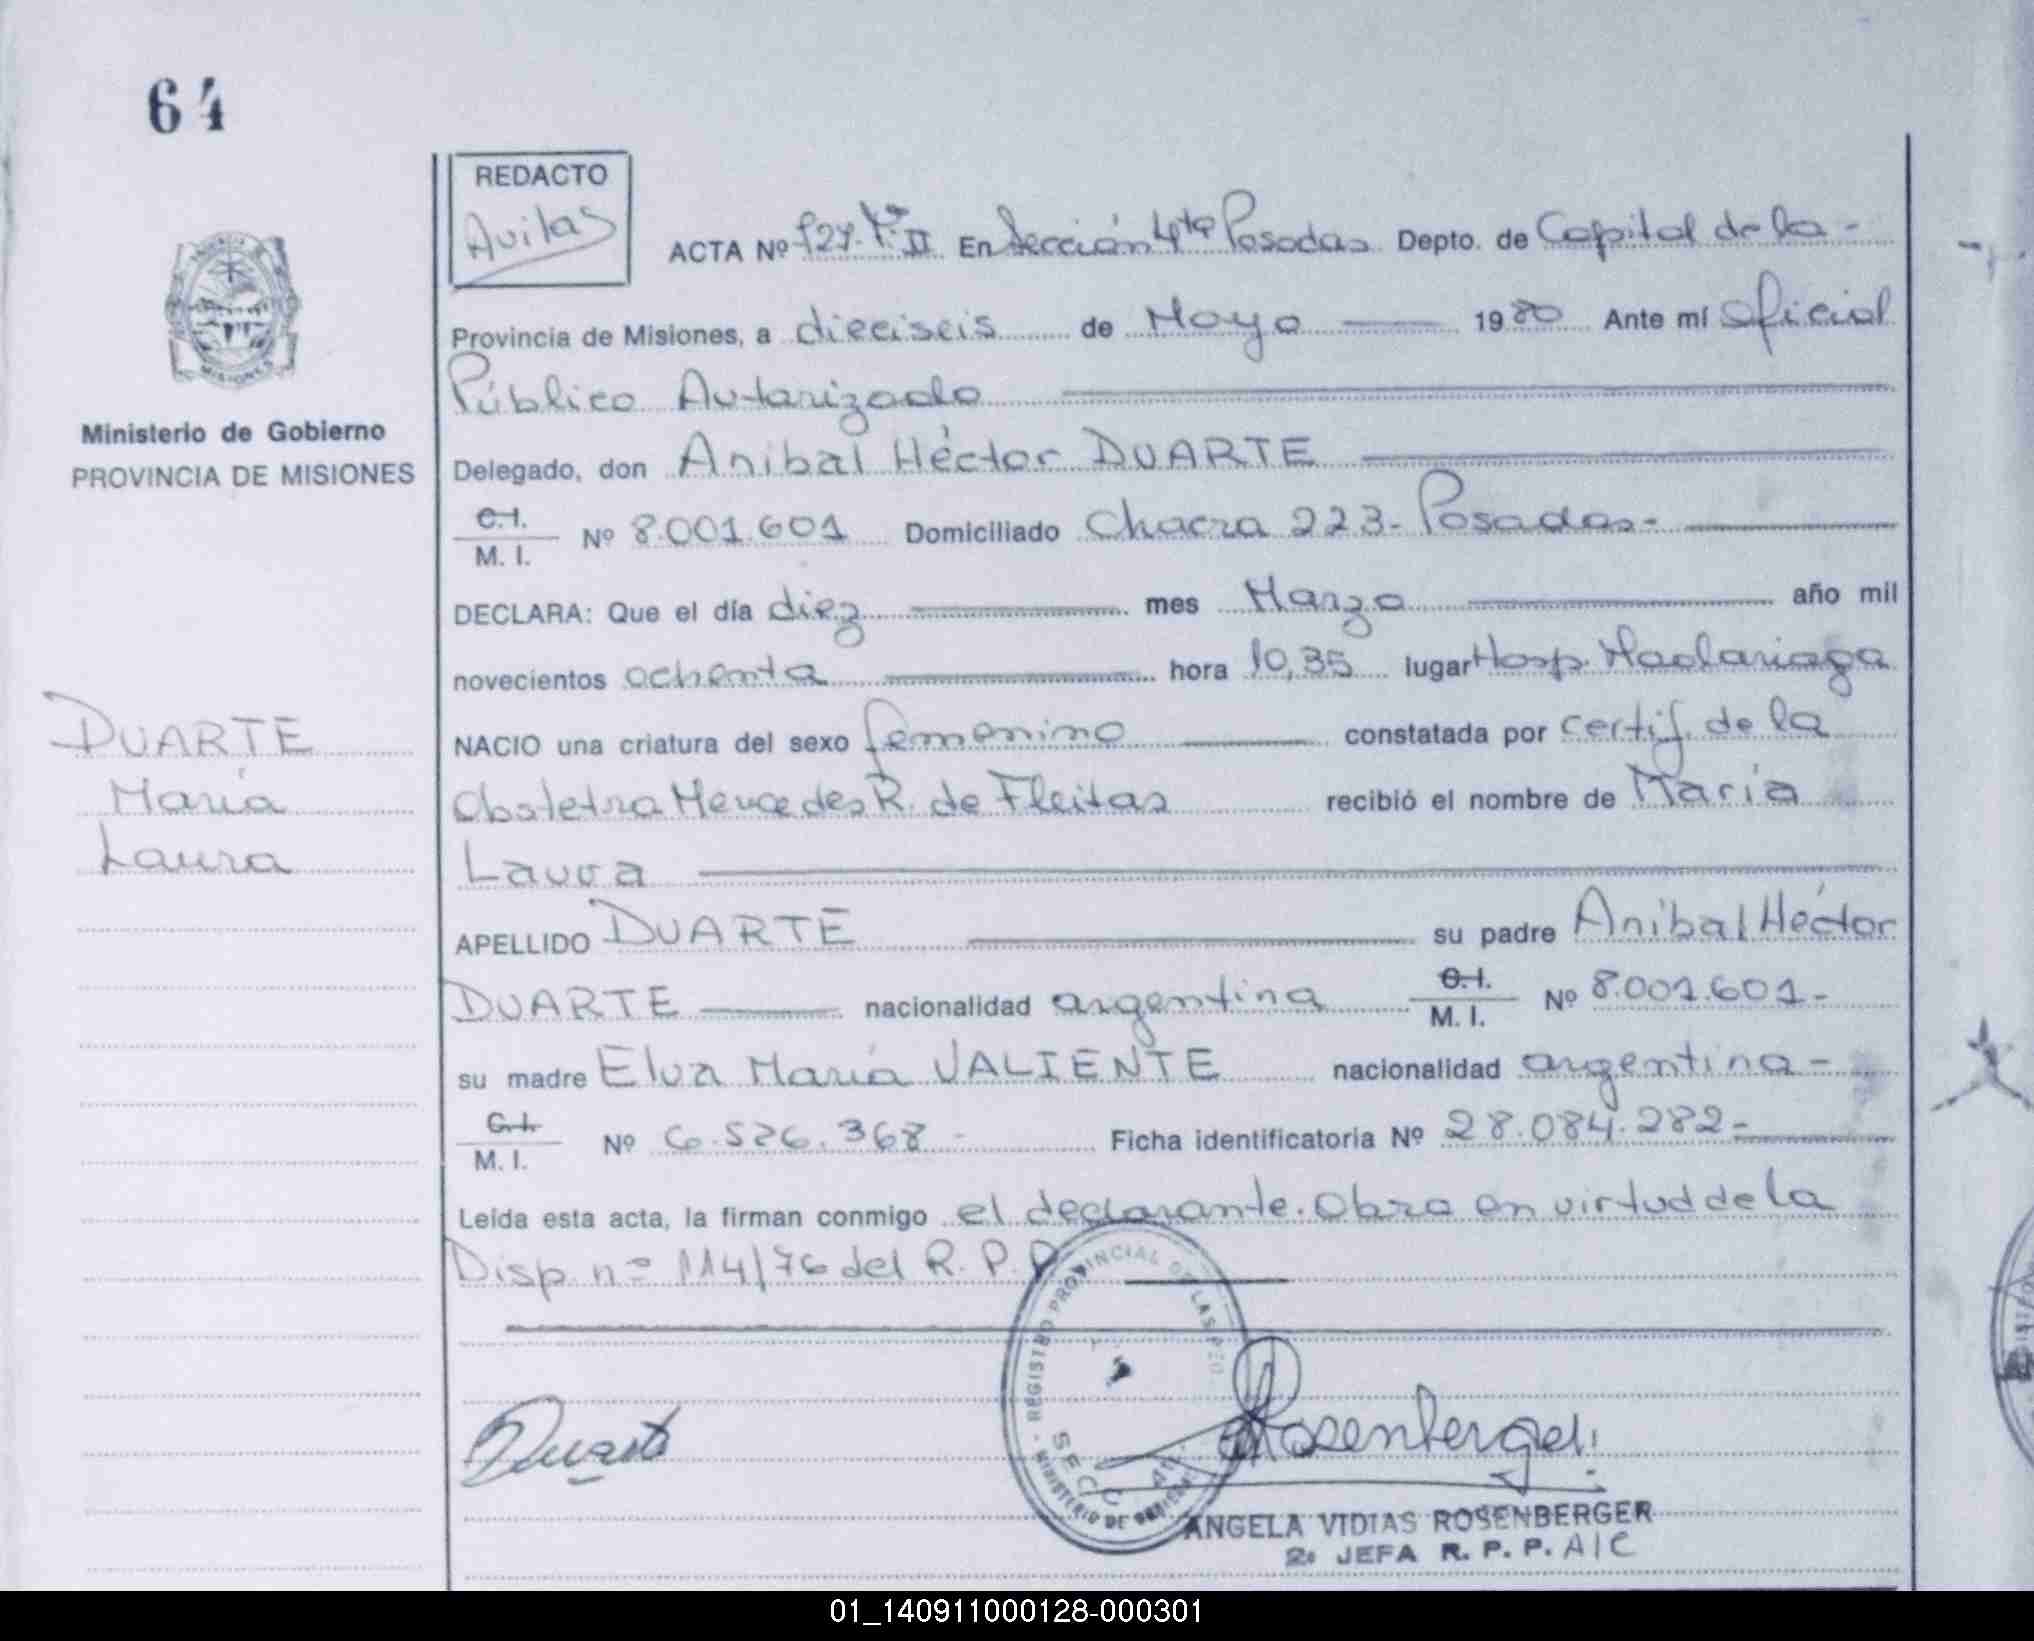 64
REDACTO
Avilas
ACTA Nº 727. Tº II En Sección 4ta Posadas Depto. de Capital de la -
Provincia de Misiones, a dieciseis de Mayo 1980 Ante mí Oficial
Público Autorizado
Ministerio de Gobierno
PROVINCIA DE MISIONES
Delegado, don Anibal Héctor DUARTE
C.I.
M. I. Nº 8.001.601 Domiciliado Chacra 223- Posadas-
DECLARA: Que el día diez mes Marzo año mil
novecientos ochenta hora 10,35 lugar Hosp. Madariaga
DUARTE
María
Laura
NACIO una criatura del sexo femenino constatada por certif. de la
Obstetra Mercedes R. de Fleitas recibió el nombre de María
Laura
APELLIDO DUARTE su padre Anibal Héctor
DUARTE nacionalidad argentina C.I. M. I. Nº 8.001.601-
su madre Elva María VALIENTE nacionalidad argentina -
C.I.
M. I. Nº 6.526.368 - Ficha identificatoria Nº 28.084.282-
Leída esta acta, la firman conmigo el declarante. Obra en virtud de la
Disp. nº 114/76 del R. P. P.
REGISTRO PROVINCIAL DE LAS
SECC 4a
MINISTERIO DE
Duarte
Rosenberger
ANGELA VIDIAS ROSENBERGER
2º JEFA R. P. P. A/C
MISIONES
01_140911000128-000301